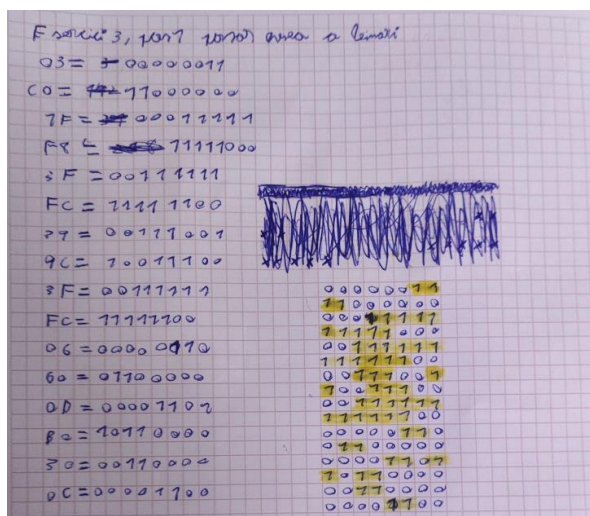 3,
03= 00000011
C0= 11000000
1F= 00011111
F8= 11111000
3F=00111111
FC=11111100
39=00111001
9C=10011100
3F=00111111
FC=11111100
06=00000110
60=01100000
0D=00001101
B0=10110000
30=00110000
0C=00001100
00000011
11000000
00011111
11111000
00111111
11111100
00111001
10011100
00111111
11111100
00000110
01100000
00001101
10110000
00110000
00001100